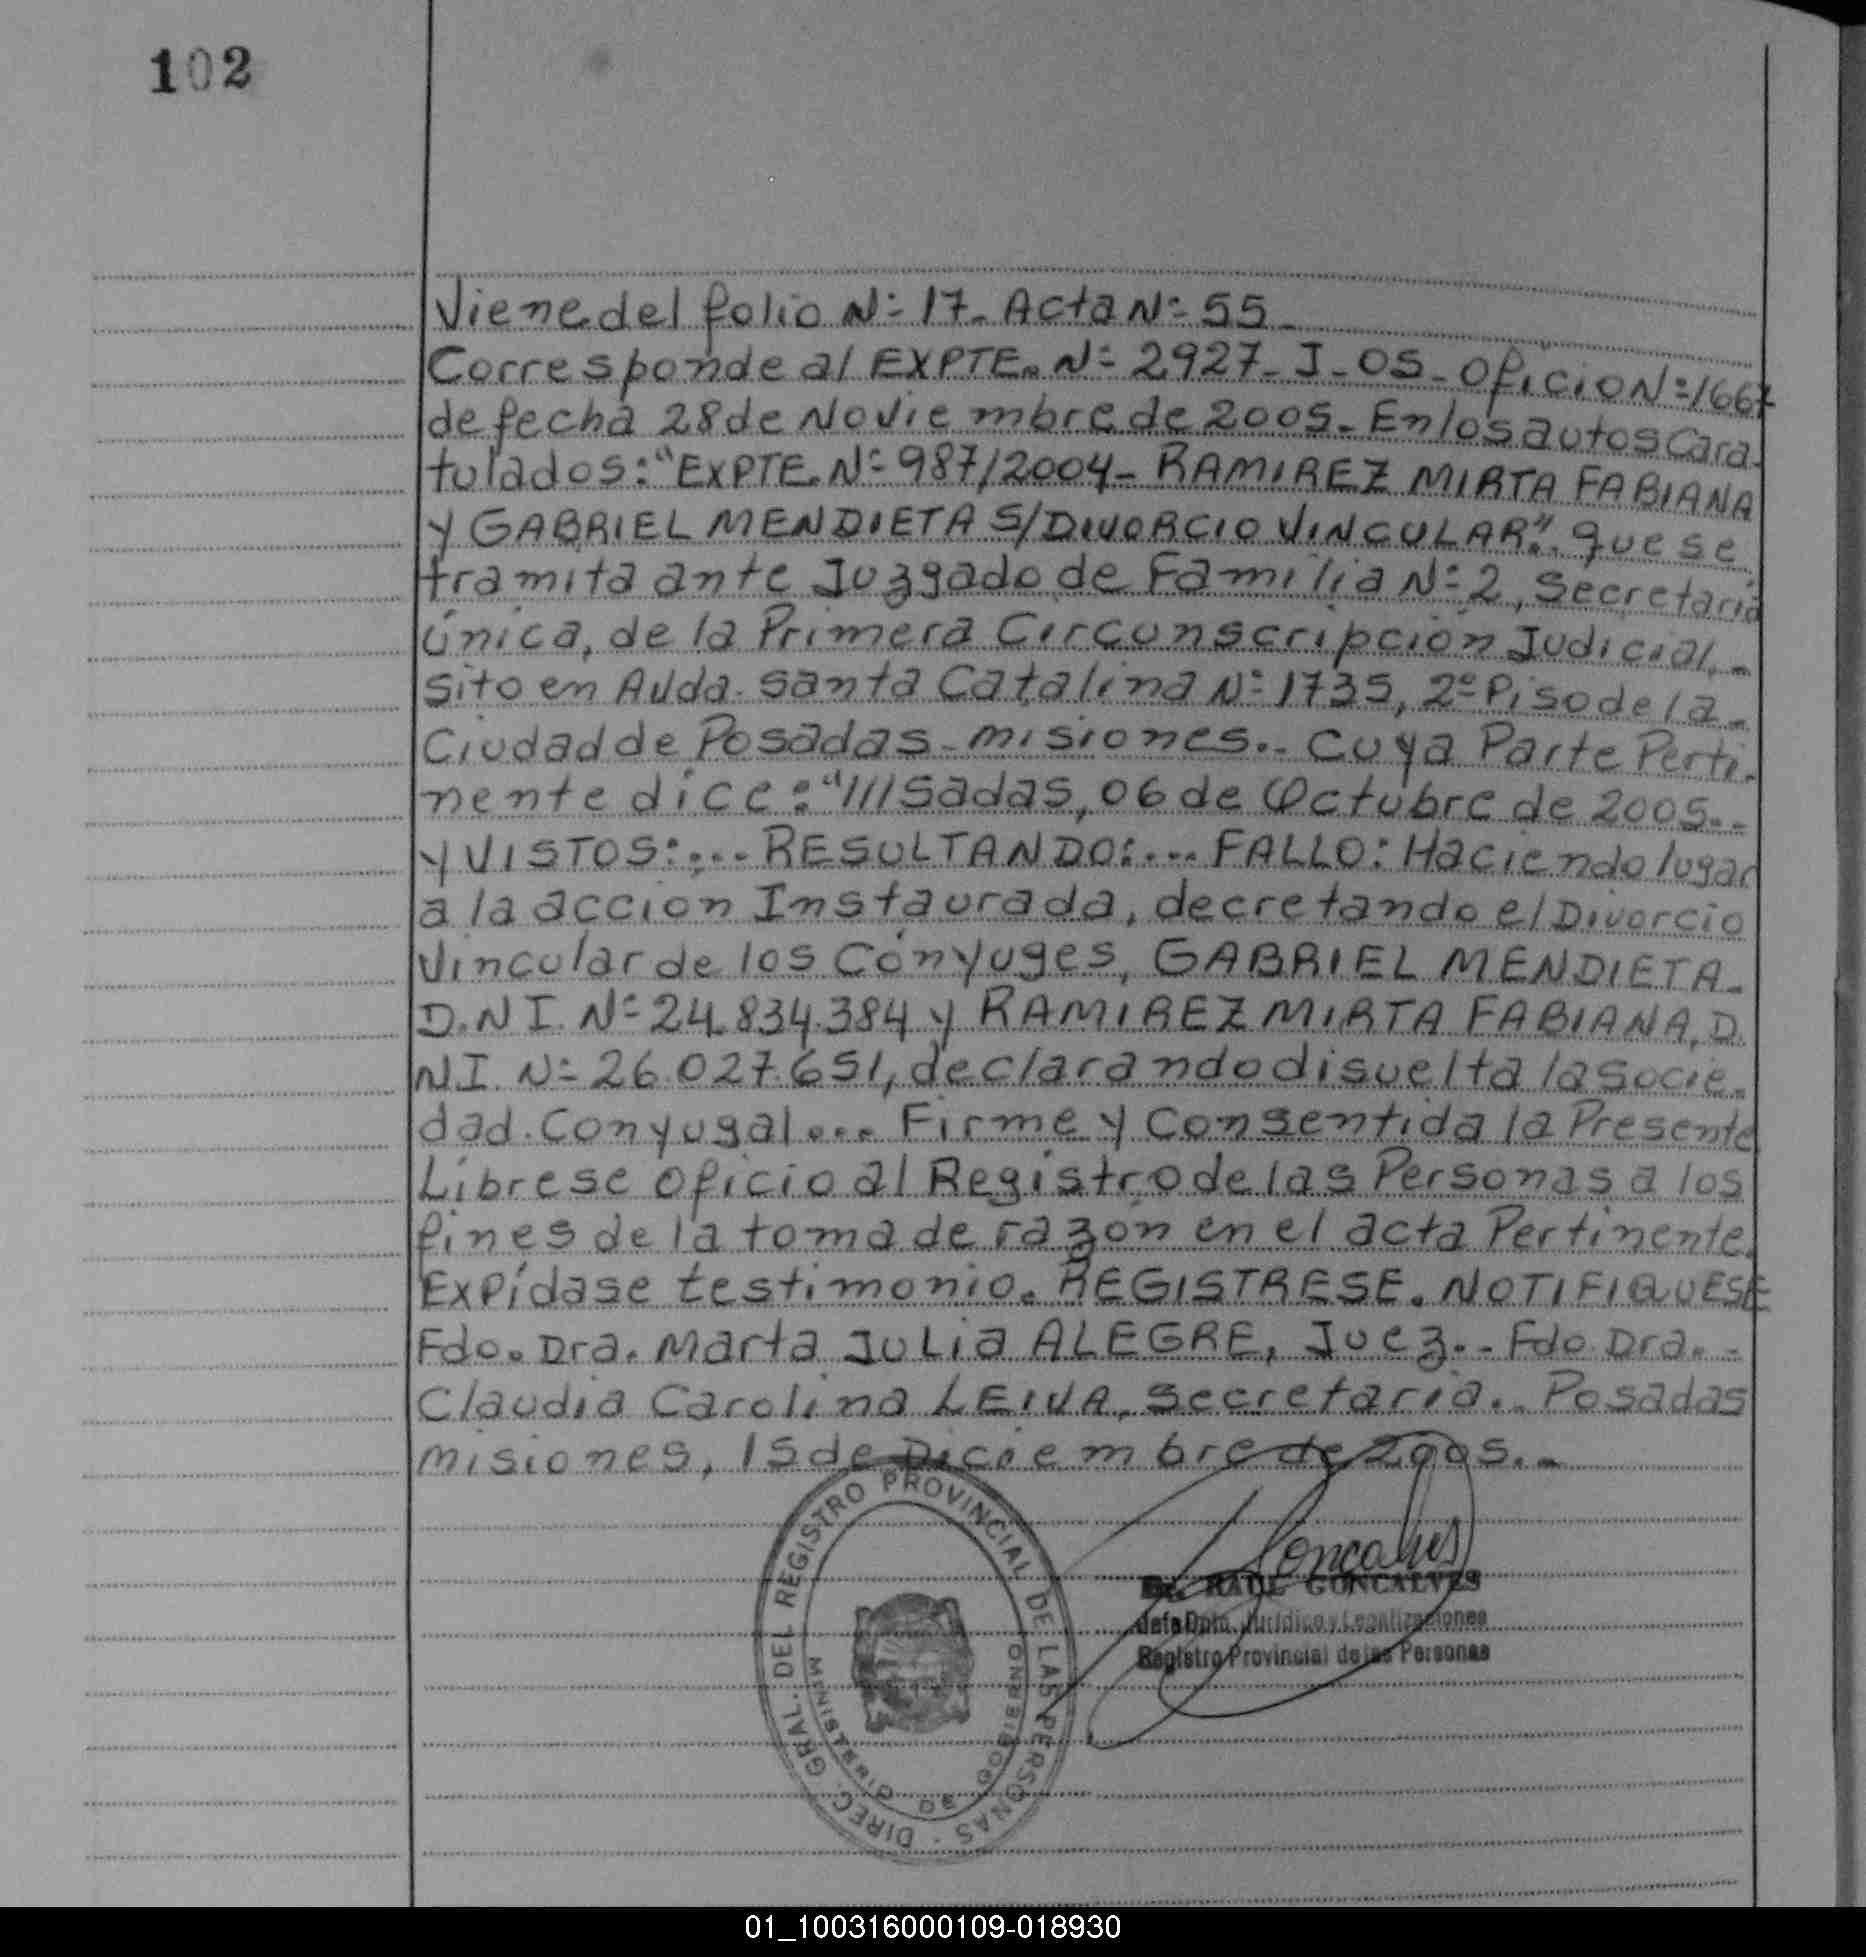 102
Viene del folio N:- 17. Acta N:- 55.
Corresponde al EXPTE. N:- 2927- J- 05- Oficio N:-1667
de fecha 28 de Noviembre de 2005.- En los autos Cara-
tulados: "EXPTE. N:- 987/2004- RAMIREZ MIRTA FABIANA
y GABRIEL MENDIETA S/DIVORCIO VINCULAR". que se
tramita ante Juzgado de Familia N:-2, Secretaría
Única, de la Primera Circunscripción Judicial,-
sito en Avda. Santa Catalina N:- 1735, 2º Piso de la-
Ciudad de Posadas- misiones.- Cuya Parte Perti-
nente dice: "///sadas, 06 de Octubre de 2005.-
y VISTOS:... RESULTANDO:... FALLO: Haciendo lugar
a la acción Instaurada, decretando el Divorcio
Vincular de los Cónyuges, GABRIEL MENDIETA-
D.N I. N:- 24.834.384 y RAMIREZ MIRTA FABIANA, D.
NI. N:- 26.027.651, declarando disuelta la socie-
dad. Conyugal... Firme y Consentida la Presente
Líbrese oficio al Registro de las Personas a los
fines de la toma de razón en el acta Pertinente.
Expídase testimonio. REGISTRESE. NOTIFIQUESE
Fdo. Dra. Marta Julia ALEGRE, Juez.- Fdo. Dra.-
Claudia Carolina LEIVA, Secretaria.- Posadas
misiones, 15 de Diciembre de 2005.-
DIREC. GRAL. DEL REGISTRO PROVINCIAL DE LAS PERSONAS
MINISTERIO DE GOBIERNO
Goncalves
Dr. RAUL GONCALVES
Jefe Dpto. Jurídico y Legalizaciones
Registro Provincial de las Personas
01_100316000109-018930